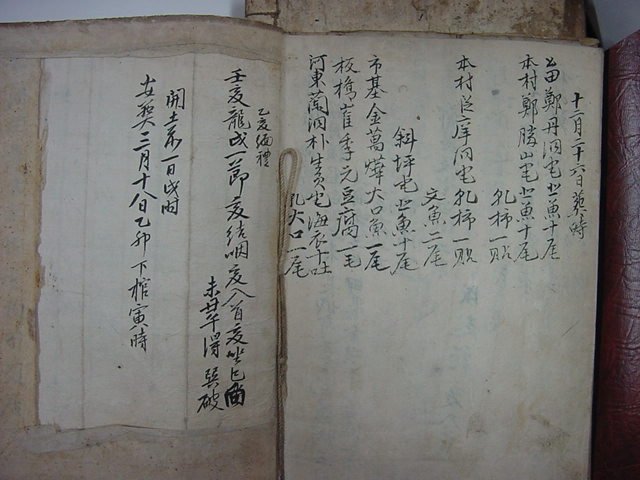 十一月二十六日葬時
苗鄭丹洞宅北魚十尾
本村鄭勝山宅北魚十尾
乳柿一貼
本村 洞宅乳柿一貼
文魚二尾
斜坪宅北魚十尾
市基金萬燁大口魚一尾
板橋崔季元豆腐一毛
河東閣洞朴生員宅海衣十吐
乳大口一尾
乙亥緬禮
壬亥龍戌一節亥結咽亥入首亥坐巳向
未 得巽破
開土 一日戌時
安葬二月十八日乙卯下棺寅時